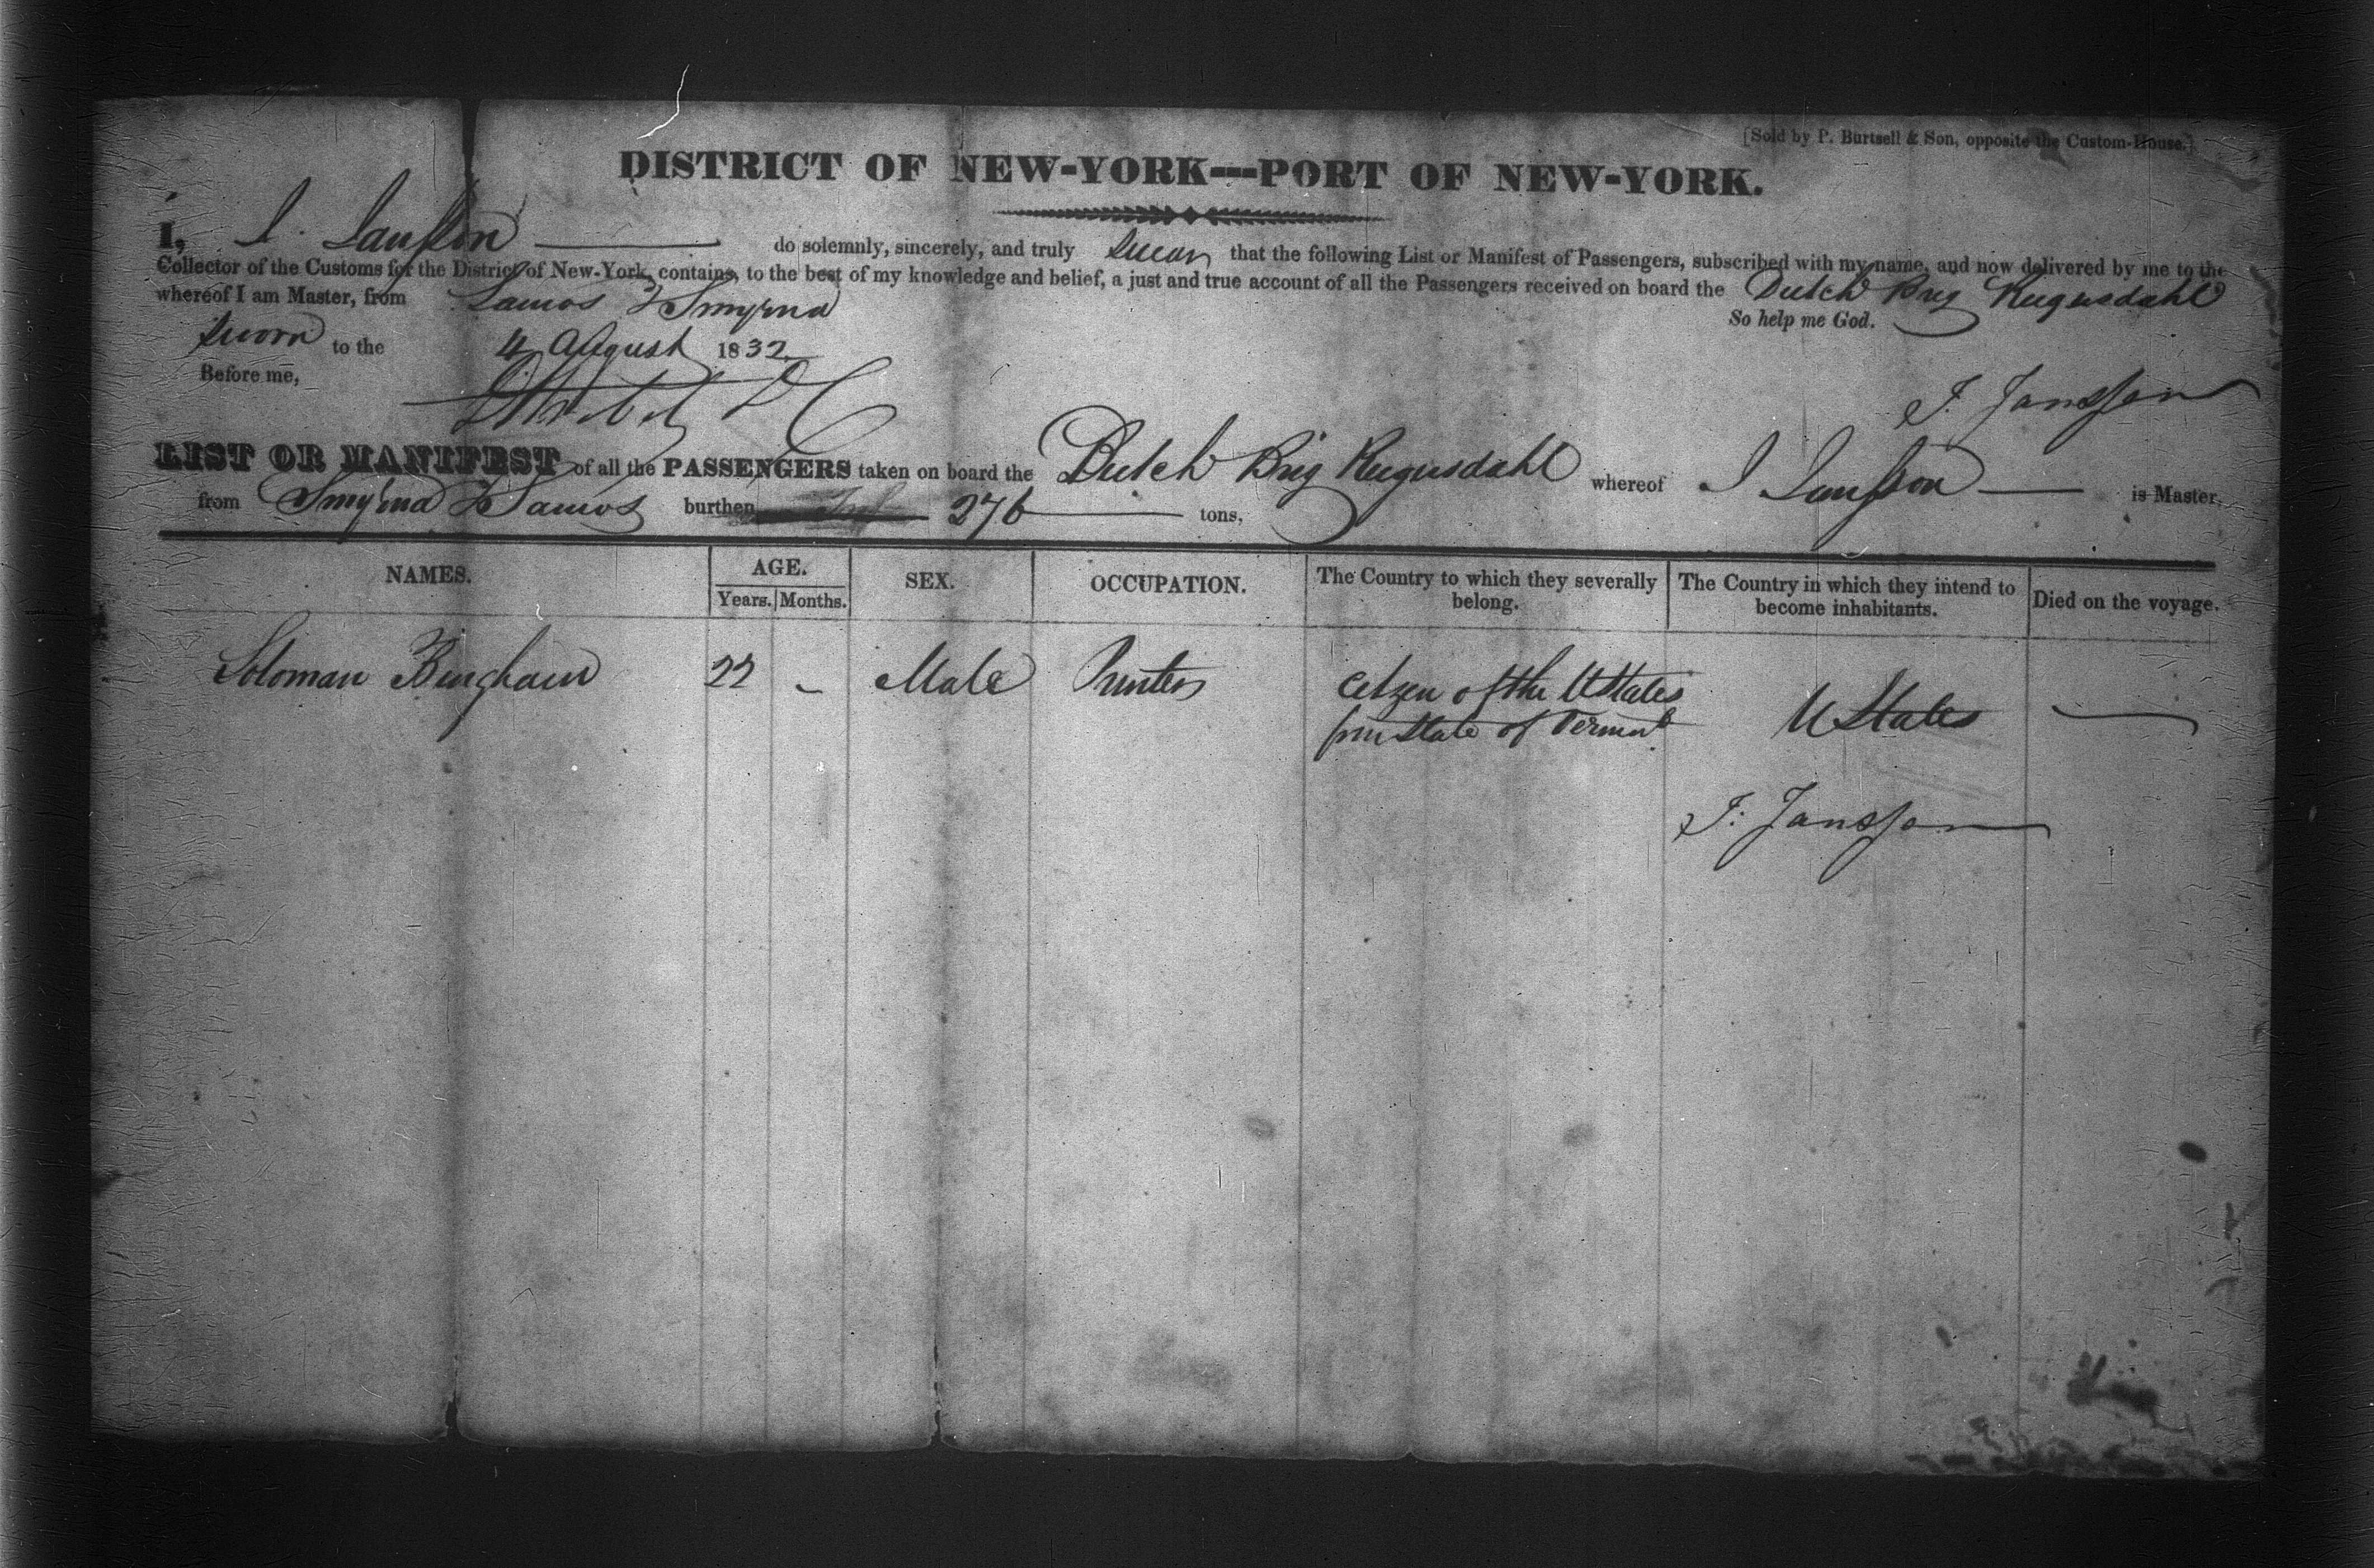 [Sold by P. Burtsell & Son, opposite the Custom-House.]
DISTRICT OF NEW-YORK---PORT OF NEW-YORK.
I, I. Jansson do solemnly, sincerely, and truly swear that the following List or Manifest of Passengers, subscribed with my name, and now delivered by me to the
Collector of the Customs for the District of New-York, contains, to the best of my knowledge and belief, a just and true account of all the Passengers received on board the Dutch Brig
whereof I am Master, from Samos & Smyrna
So help me God.
Sworn to the 4 August 1832
Before me,
J. Jansson
LIST OR MANIFEST of all the PASSENGERS taken on board the Dutch Brig whereof I Jansson is Master,
from Smyrna & Samos burthen 276 tons,
NAMES. AGE. SEX. OCCUPATION. The Country to which they severally belong. The Country in which they intend to become inhabitants. Died on the voyage.
Years. Months.
Soloman Bingham 22 - Male Printer Citzen of the UStates
from State of Vermont UStates —
J: Jansson